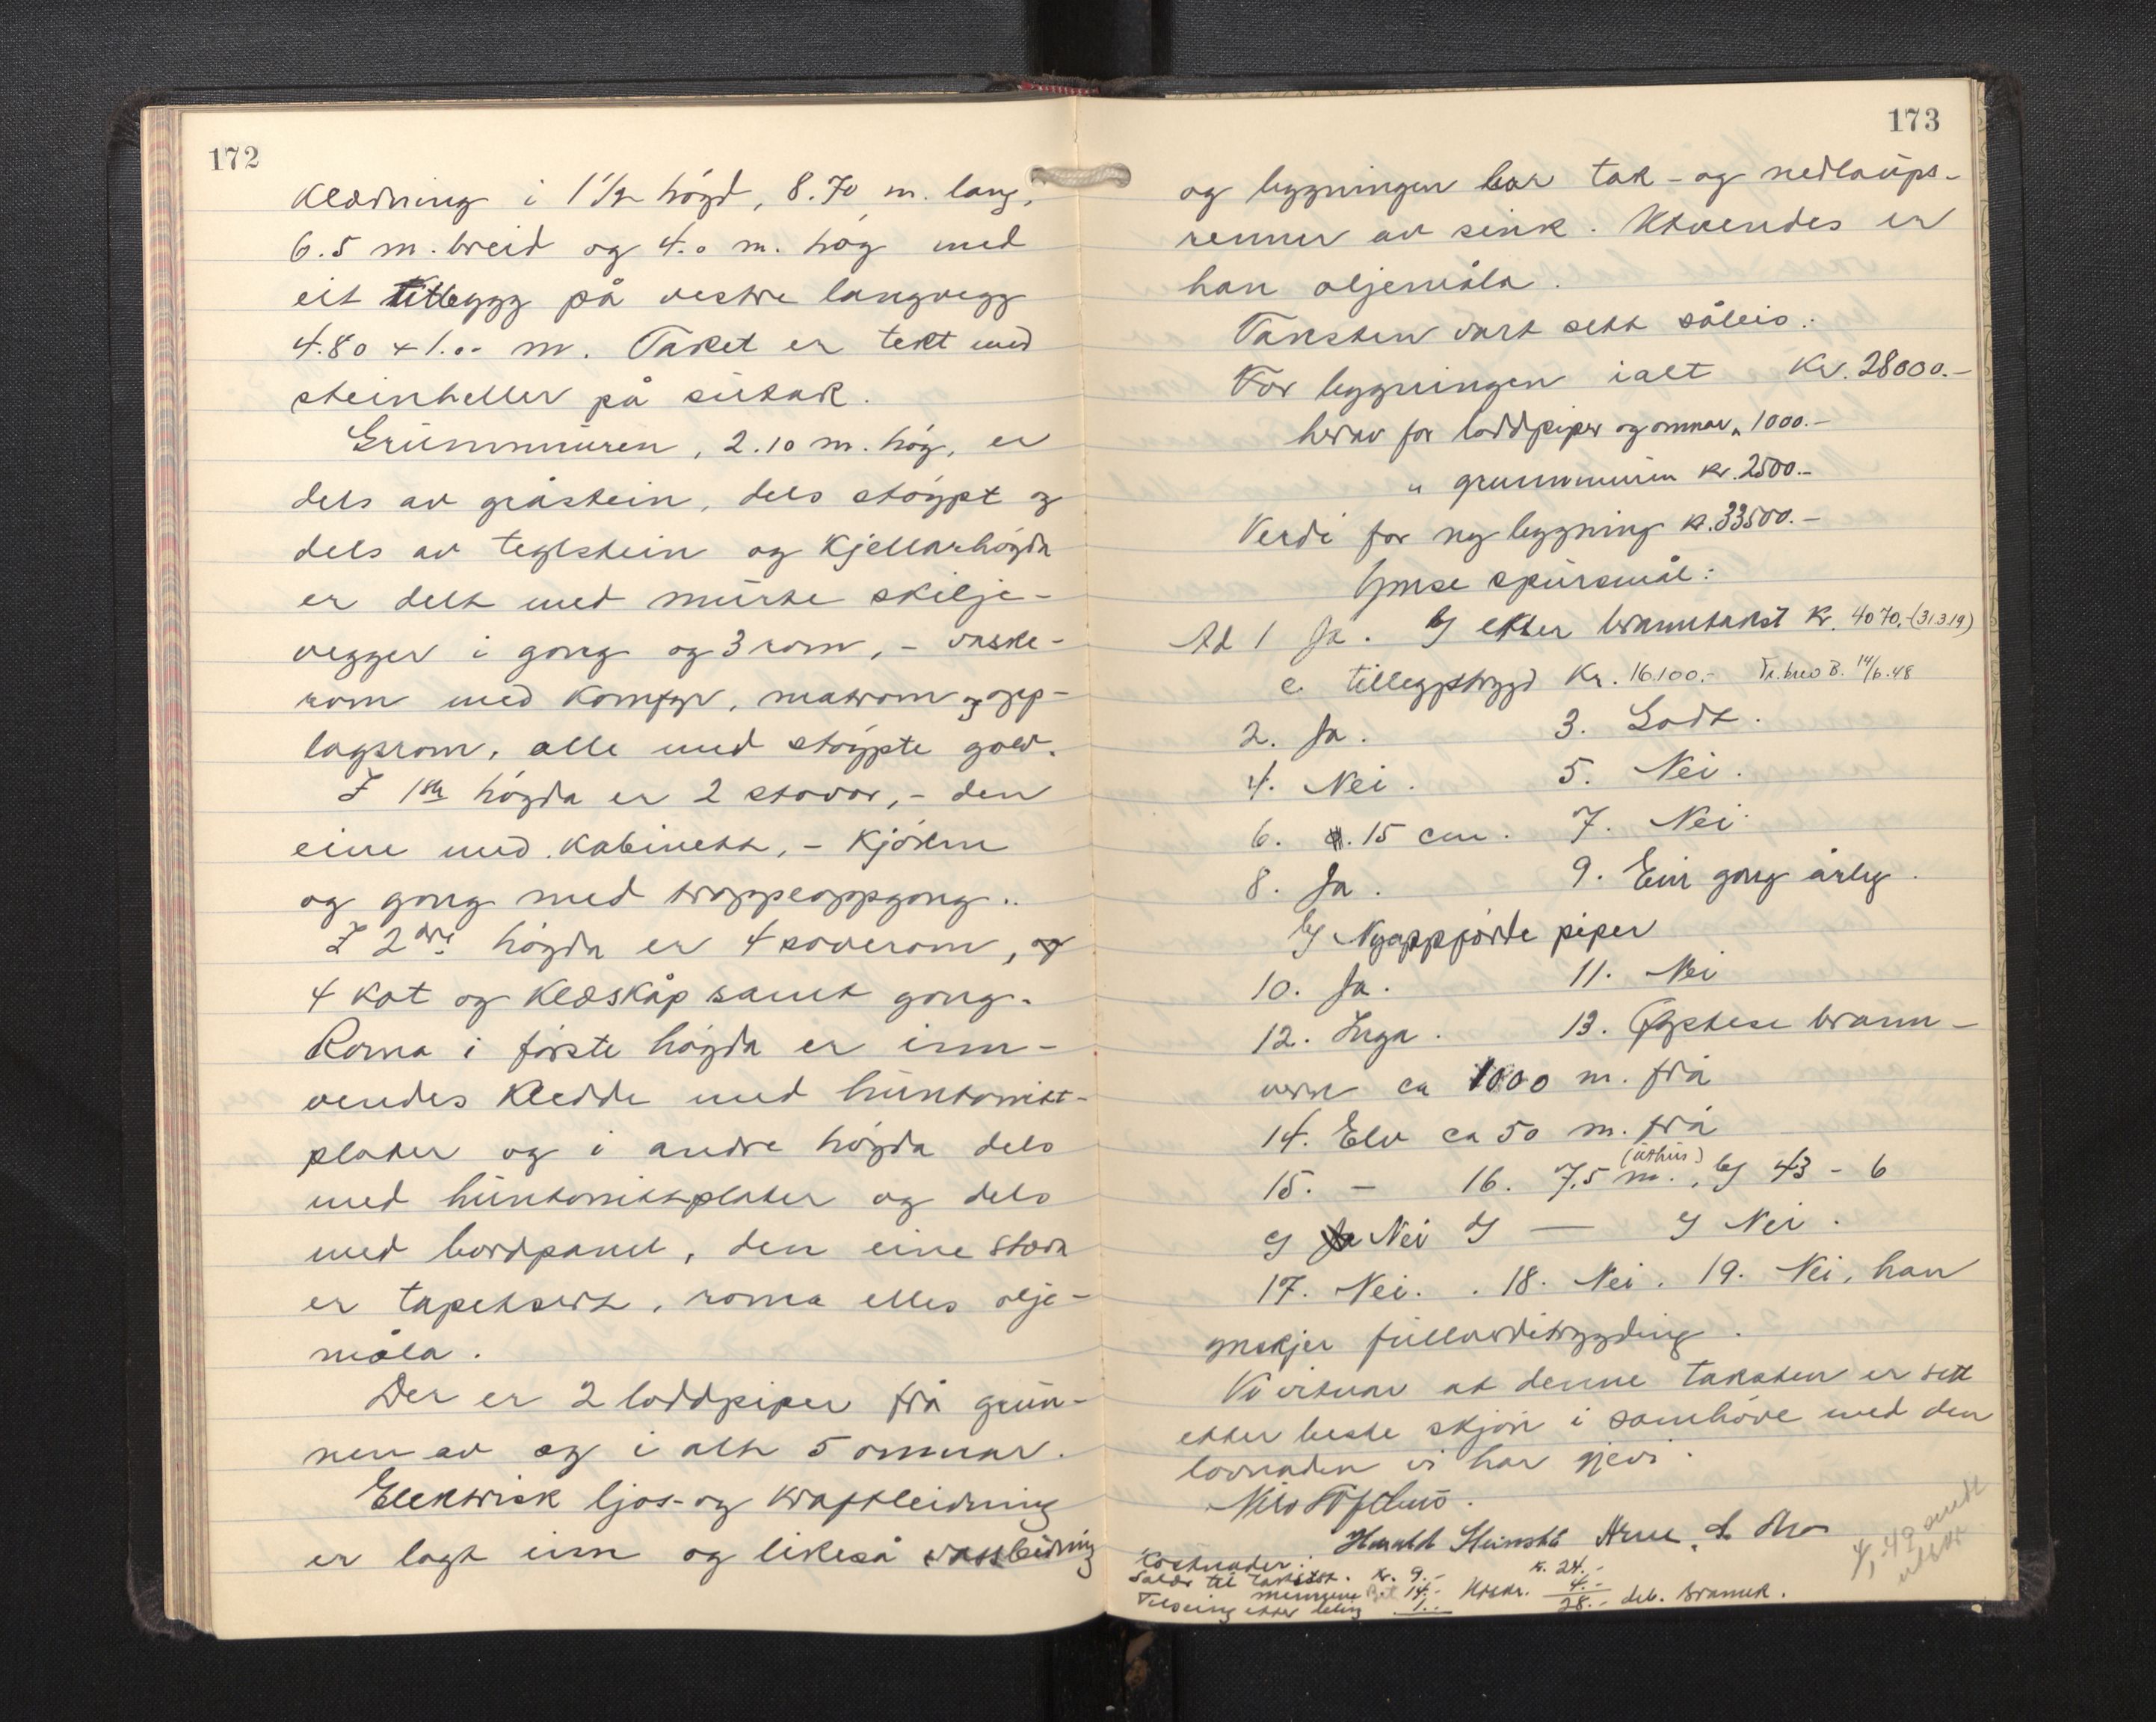 172
Klædning i 1 1/2 högd, 8.70 m. lang,
6.5 m. breid og 4.0 m. høg med
eit tilbygg på vestre langvegg
4.80 x 1.00 m. Taket er tekt med
steinheller på sutak.
Grunnmuren, 2.10 m. høg, er
dels av gråstein, dels støypt og
dels av teglstein og kjellarhøgda
er delt med murte skilje-
vegger i gong og 3 rom, - vaske-
rom med komfyr, matrom og opp-
lagsrom, alle med støypte golv.
I 1ste høgda er 2 stovor, - den
eine med kabinett, - kjøken
og gong med trappeoppgong..
I 2dre høgda er 4 soverom,
4 kot og klæskåp samt gong.
Roma i første høgda er inn-
vendes kledde med huntonitt-
plater og i andre høgda dels
med huntonittplater og dels
med bordpanel, den eine stova
er tapetsert, roma elles olje-
måla.
Der er 2 loddpiper frå grun-
nen av og i alt 5 omnar.
Elektrisk ljos- og kraftleidning
er lagt inn og likeså vassleidning
173
og bygningen har tak- og nedlaups-
renner av sink. Utvendes er
han oljemåla.
Taksten vart sett såleis:
For bygningen ialt Kr. 28000.-
herav for loddpiper og omnar " 1000.-
" grunnmuren kr. 2500.-
Verdi for ny bygning kr. 33500.-
Ymse spursmål:
Ad 1 Ja. b) etter branntakst Kr. 4070.- (31.3.19)
c. tilleggstrygd Kr. 16.100.- Fr. brev B. 14/6.48
2. Ja. 3. Godt.
4. Nei. 5. Nei.
6. 15 cm. 7. Nei.
8. Ja. 9. Ein gong årleg.
b) Nyoppførde piper
10. Ja. 11. Nei
12. Inga. 13. Øystese brann-
vern ca 1000 m. frå
14. Elv ca 50 m. frå
(uthus)
15. - 16. 7,5 m., b) 43 - 6
c) Nei d) — e) Nei.
17. Nei. . 18. Nei. 19. Nei, han
ynskjer fullverditrygding.
Vi vitnar at denne taksten er sett
etter beste skjøn i samhøve med den
lovnaden vi har gjevi.
Nils Tofthus.
Harald Steinstø Arne
Kostnader:
Salær til takstst. kr. 9.- kr. 24.-
mennene 14.- Utskr. 4.-
Tilseing etter deling 1.- 28.- deb. Brannk.
4/1-49 sendt
utskr